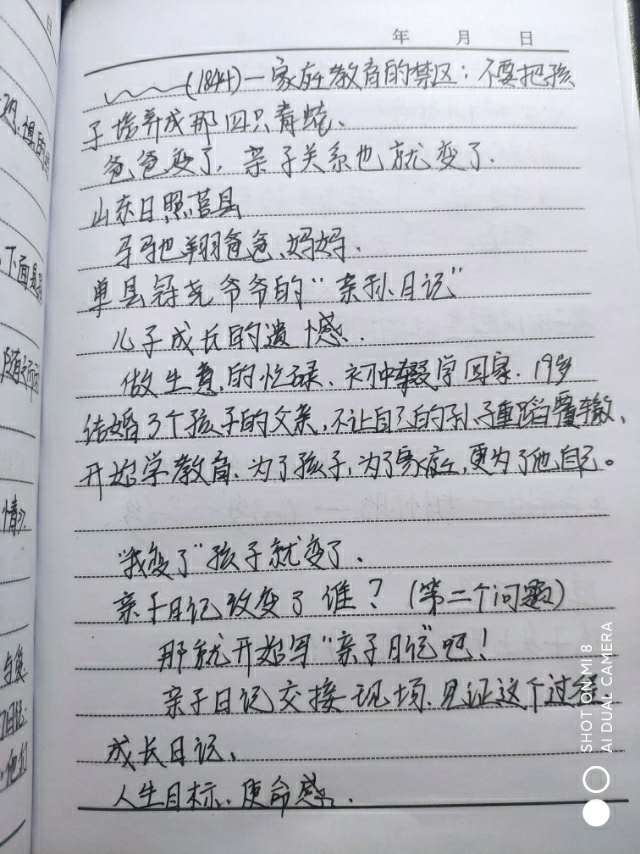 年 月 日
(1844)一家庭教育的禁区:不要把孩
子培养成那四只青蛙、
爸爸变了,亲子关系也就变了.
山东日照莒县
马驰翔爸爸、妈妈.
单县冠尧爷爷的"亲孙日记"
儿子成长的遗憾.
做生意的忙碌、初中辍学回家.19岁
结婚3个孩子的父亲,不让自己的孙子重蹈覆辙、
开始学教育.为了孩子,为了家庭,更为了他自己。
"我变了"孩子就变了.
亲子日记改变了谁?(第二个问题)
那就开始写"亲子日记"吧!
亲子日记交接现场.见证这个过程
成长日记、
人生目标、使命感.
日
下面是
情》
他们
SHOT ON MI 8
AI DUAL CAMERA